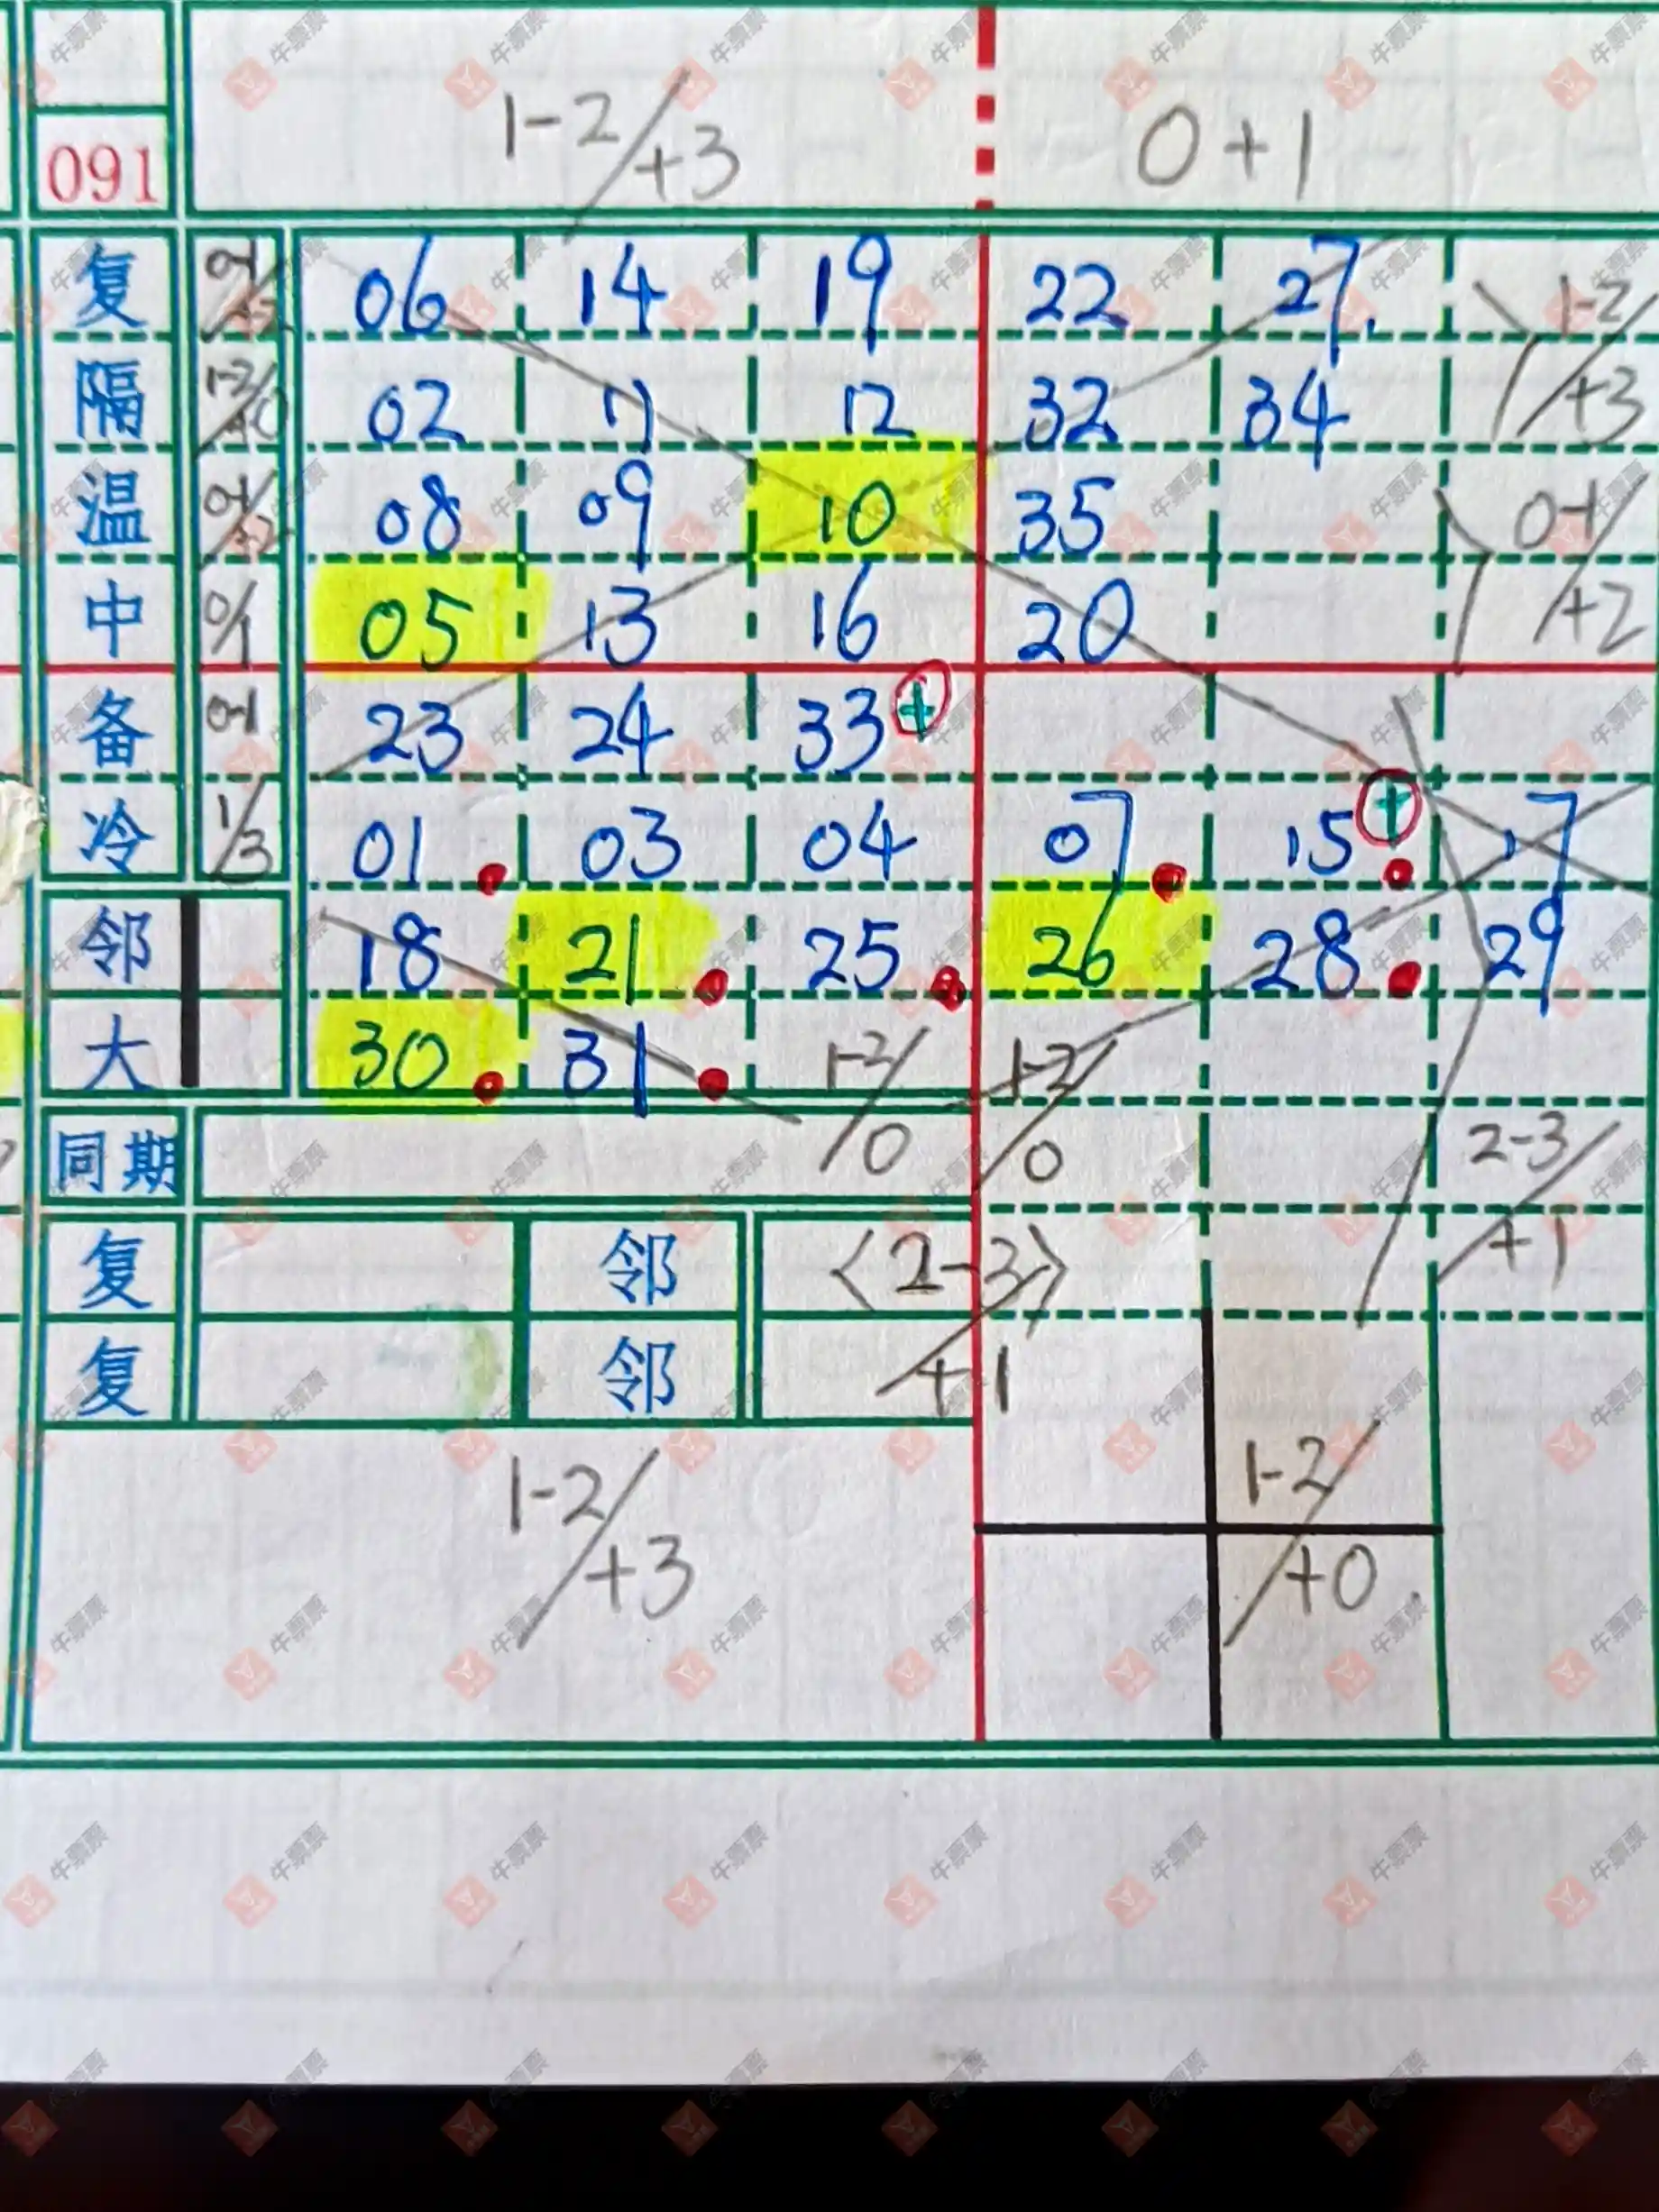 1-2/+3 0+1
091
复 0-1/+2 06 14 19 22 27 1-2/+3
隔 1-2/+0 02 11 12 32 34
温 0-1/+2 08 09 10 35 0-1/+2
中 0/1 05 13 16 20
备 0-1 23 24 33 +
冷 1/3 01 03 04 07 15 + 17
邻 18 21 25 26 28 29
大 30 31 1-2/0 1-2/0
同期 2-3/+1
复 邻 <2-3>/+1
复 邻
1-2/+3 1-2/+0
牛票票